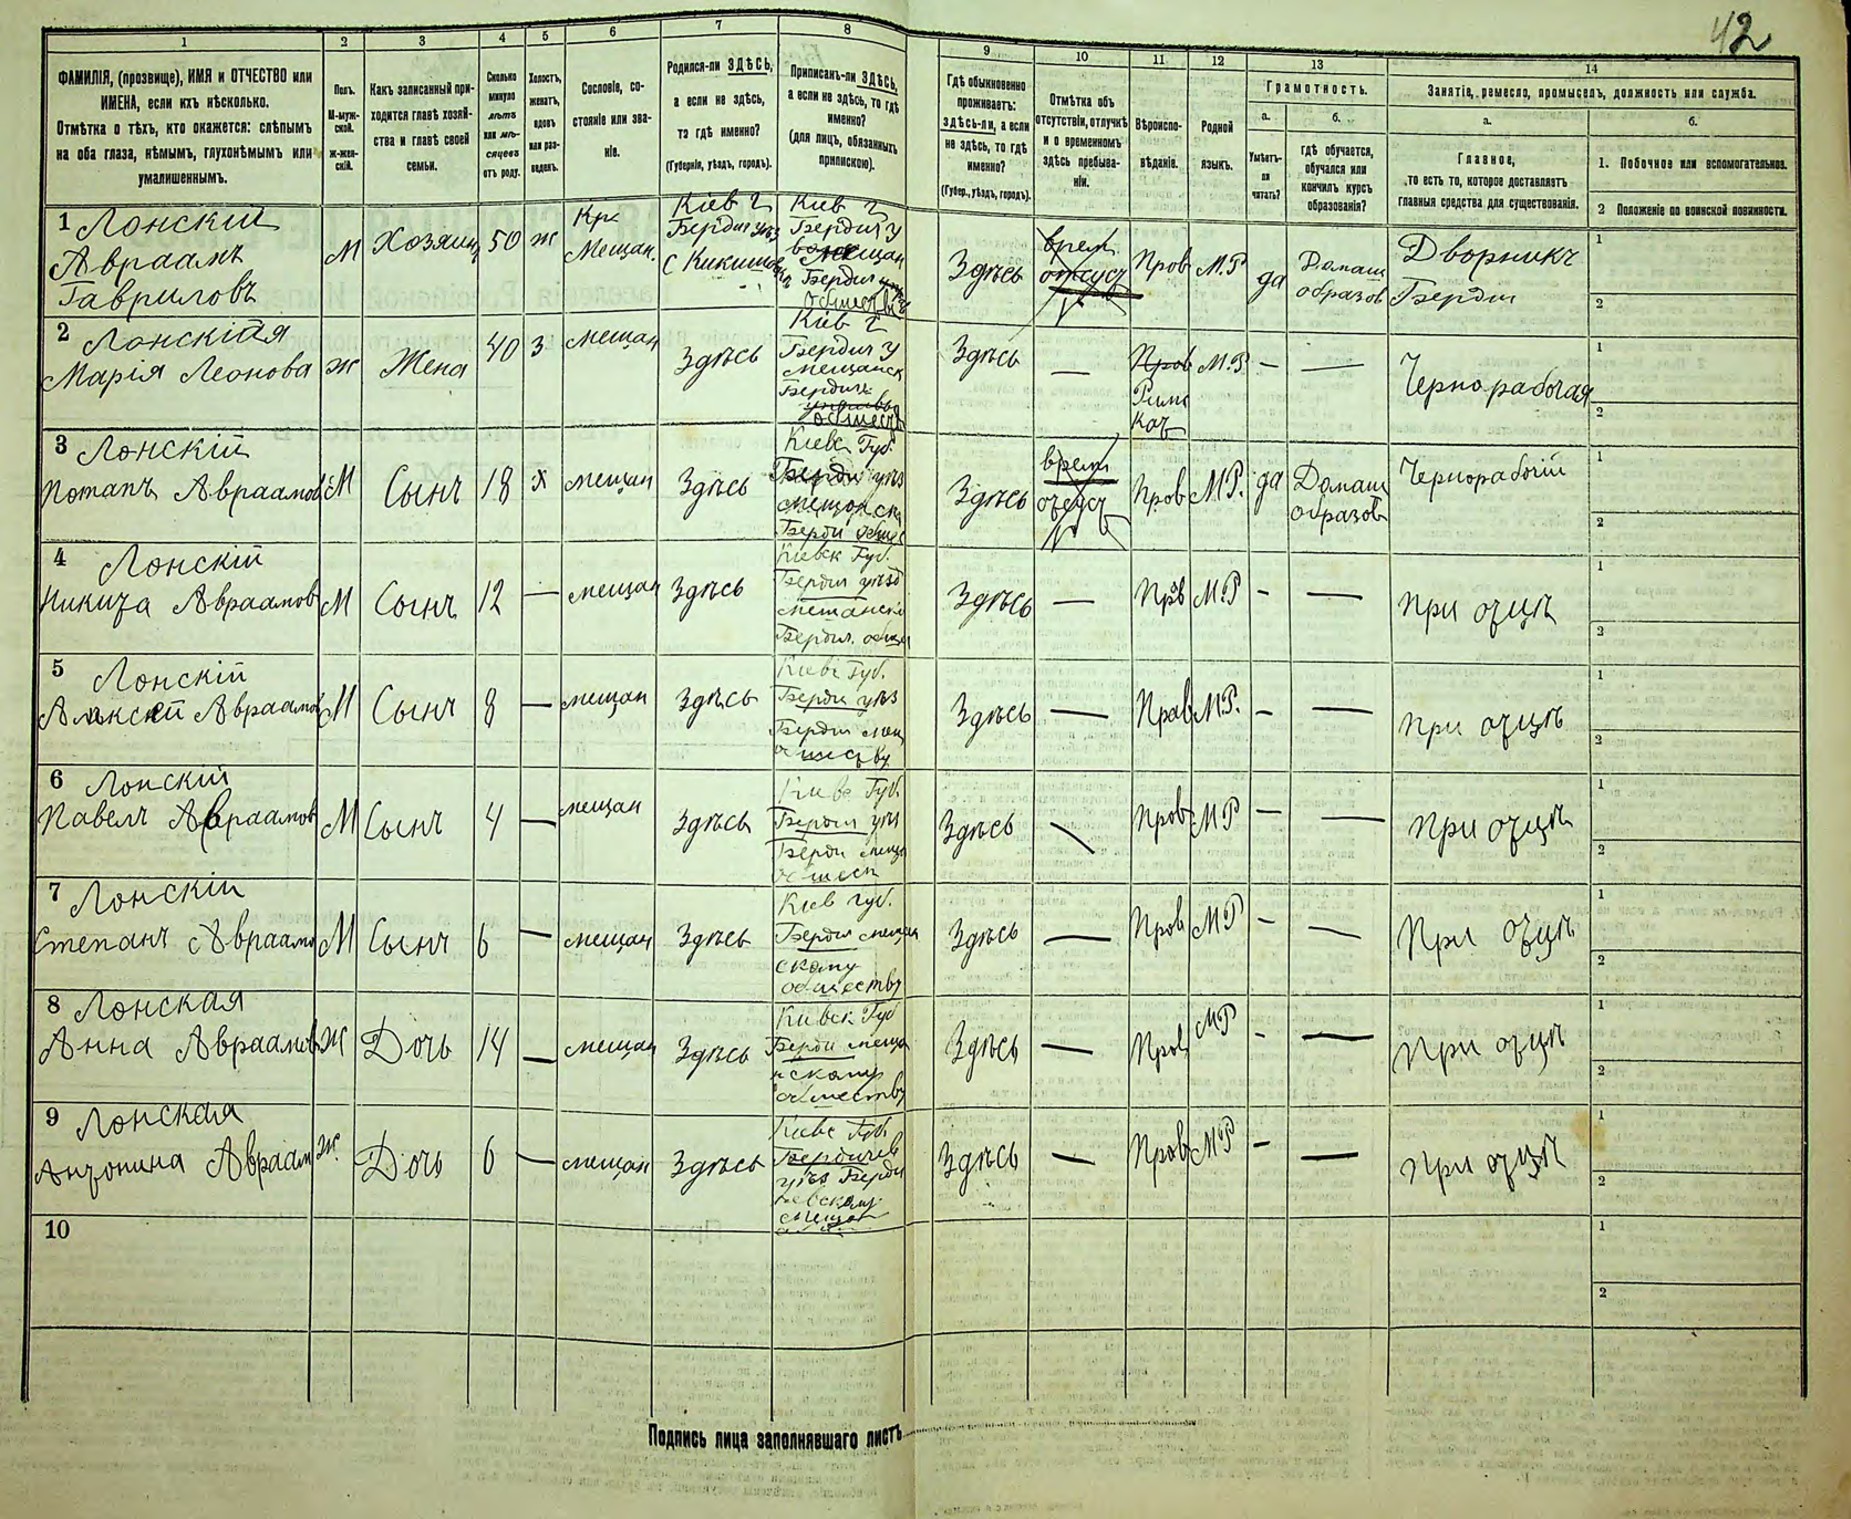 42
1 2 3 4 5 6 7 8 9 10 11 12 13 14
ФАМИЛІЯ, (прозвище), ИМЯ и ОТЧЕСТВО или
ИМЕНА, если ихъ нѣсколько.
Отмѣтка о тѣхъ, кто окажется: слѣпымъ
на оба глаза, нѣмымъ, глухонѣмымъ или
умалишеннымъ.
Полъ.
М-муж-
ской.
Ж-жен-
скій.
Какъ записанный при-
ходится главѣ хозяй-
ства и главѣ своей
семьи.
Сколько
минуло
лѣтъ
или мѣ-
сяцевъ
отъ роду.
Холостъ,
женатъ,
вдовъ
или раз-
веденъ.
Сословіе, со-
стояніе или зва-
ніе.
Родился-ли ЗДѢСЬ,
а если не здѣсь,
то гдѣ именно?
(Губернія, уѣздъ, городъ).
Приписанъ-ли ЗДѢСЬ,
а если не здѣсь, то гдѣ
именно?
(для лицъ, обязанныхъ
припискою).
Гдѣ обыкновенно
проживаетъ:
здѣсь-ли, а если
не здѣсь, то гдѣ
именно?
(Губер., уѣздъ, городъ).
Отмѣтка объ
отсутствіи, отлучкѣ
и о временномъ
здѣсь пребыва-
ніи.
Вѣроиспо-
вѣданіе.
Родной
языкъ.
Грамотность.
а.
Умѣетъ-
ли
читать?
б.
гдѣ обучается,
обучался или
кончилъ курсъ
образованія?
Занятіе, ремесло, промыселъ, должность или служба.
а.
Главное,
то есть то, которое доставляетъ
главныя средства для существованія.
б.
1. Побочное или вспомогательное.
2 Положеніе по воинской повинности.
1 Лонскій
Авраамъ
Гавриловъ
М
Хозяинъ
50
ж
Кр
Мещан.
Кіев г
Бердич уѣз
с
Кіев г
Бердич у
Бердич
Здѣсь
врем
отсуст
Пров
М.Р
да
Домаш
образов
Дворникъ
Бердич
1
2
2 Лонскіая
Марія Леонова
ж
Жена
40
З
мещан
Здѣсь
Кіев г
Бердич у
мещанск
Бердич
общест
Здѣсь
—
Пров
Римс
Кат
М.Р
—
—
Чернорабочая
1
2
3 Лонскій
Потапъ Авраамов
М
Сынъ
18
х
мещан
Здѣсь
Кіевс Губ.
Бердич уѣз
мещонск
Берди общес
Здѣсь
врем
отсуст
Пров
М.Р.
да
Домаш
образов
Чернорабочій
1
2
4 Лонскій
Никита Авраамов
М
Сынъ
12
—
мещан
Здѣсь
Кіевск Губ.
Бердич уѣзд
мещанско
Бердич. общес
Здѣсь
—
Пров
М.Р
-
—
при отцѣ
1
2
5 Лонскій
Алексей Авраамов
М
Сынъ
8
—
мещан
Здѣсь
Кіевс Губ.
Бердич уѣз
Бердич мещ
Здѣсь
—
Прав
М.Р.
-
—
при отцѣ
1
2
6 Лонскій
Павелъ Авраамов
М
Сынъ
4
—
мещан
Здѣсь
Кіевс Губ.
Бердич уѣз
Берди меща
общест
Здѣсь
Пров
М.Р
—
—
при отцѣ
1
2
7 Лонскій
Степанъ Авраамо
М
Сынъ
6
—
мещан
Здѣсь
Кіев губ.
Бердич мещан
скому
обществу
Здѣсь
—
Пров
М.Р
-
—
При отцѣ
1
2
8 Лонская
Анна Авраамов
Ж
Дочь
14
—
мещан
Здѣсь
Кіевск Губ
Бердич меща
нскому
обществу
Здѣсь
—
Пров
М.Р
-
—
при отцѣ
1
2
9 Лонская
Антонина Авраам
Ж.
Дочь
6
—
мещан
Здѣсь
Кіевс Губ.
Бердичев
уѣз Берди
чевскому
мещан
Здѣсь
—
Пров
М.Р
—
—
при отцѣ
1
2
10
1
2
Подпись лица заполнявшаго листъ